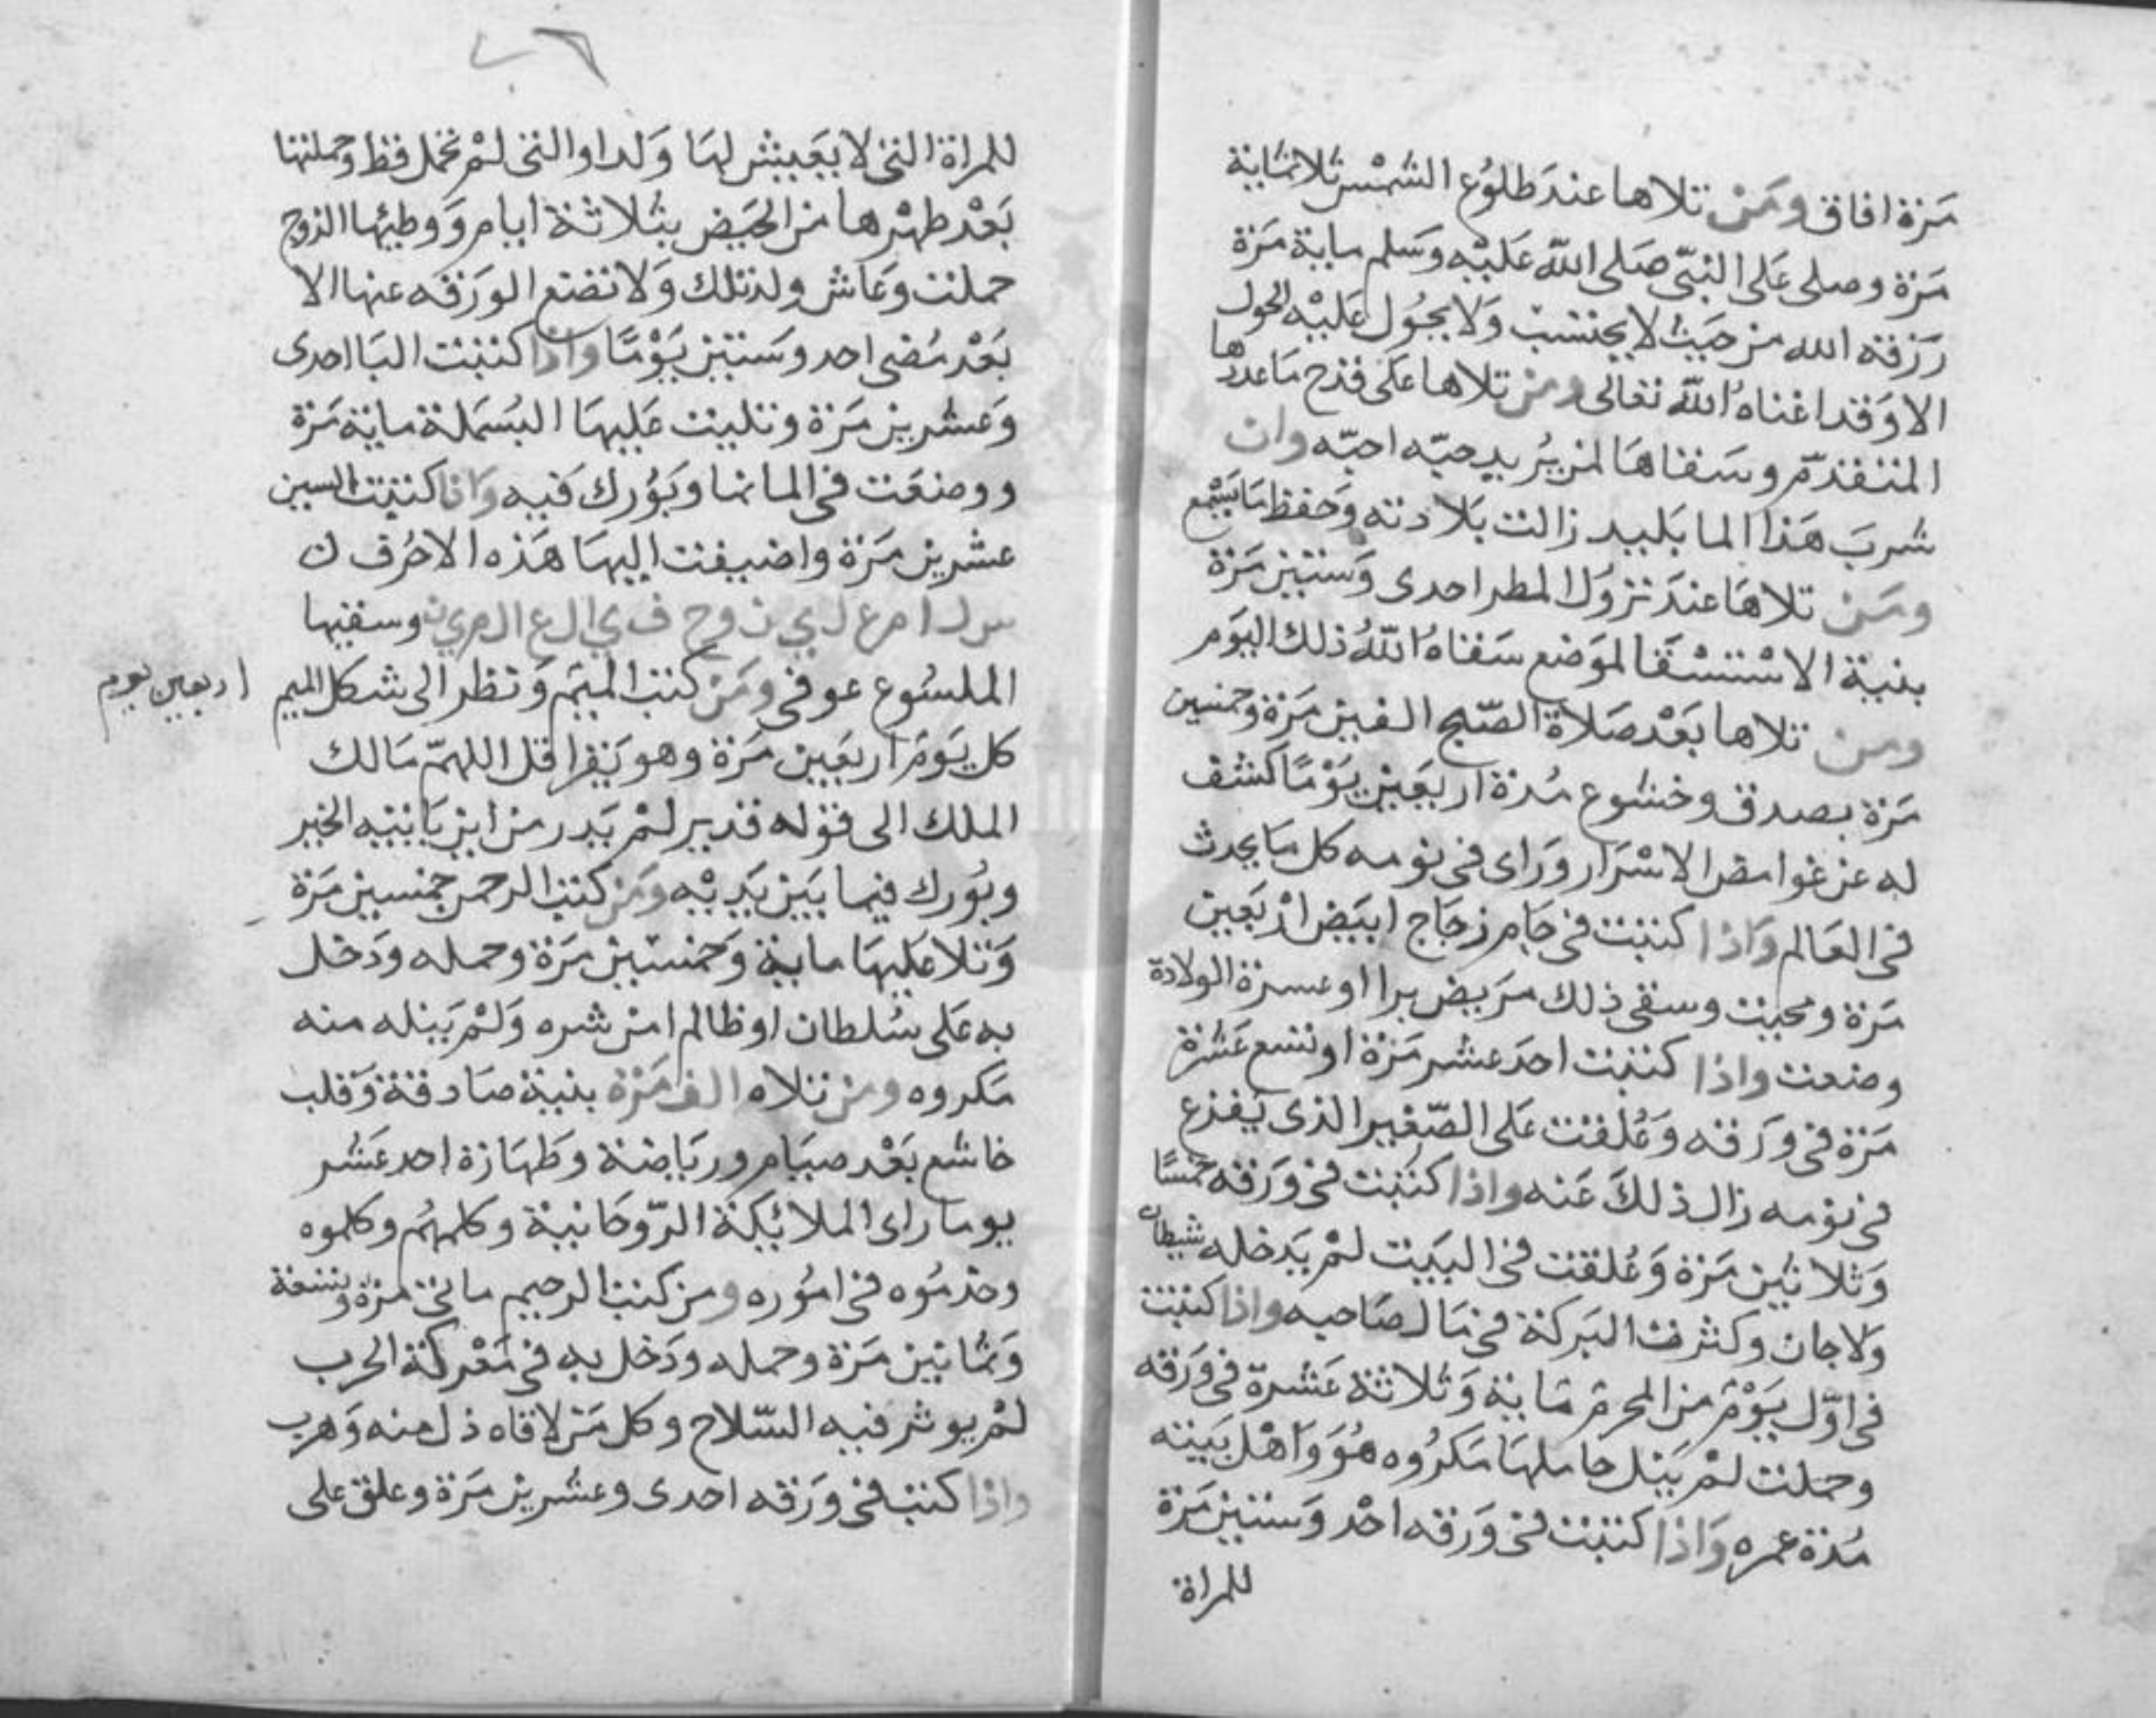 مرة افاق ومن تلاها عند طلوع الشمس ثلاثماية
مرة وصلى على النبي صلى الله عليه وسلم ماية مرة
رزقه الله من حيث لا يحتسب ولا يحول عليه الحول
الا وقد اغناه الله تعالى ومن تلاها على قدح ما عددها
المتقدم وسقاها لمن يريد حبه احبه وان
شرب هذا الما بليد زالت بلادته وحفظ ما يسمع
ومن تلاها عند نزول المطر احدى وستين مرة
بنية الاستسقا لموضع سقاه الله ذلك اليوم
ومن تلاها بعد صلاة الصبح الفين مرة وخمسين
مرة بصدق وخشوع مدة اربعين يوما كشف
له عن غوامض الاسرار وراى في نومه كل ما يحدث
في العالم واذا كتبت في جام زجاج ابيض اربعين
مرة ومحيت وسقى ذلك مريض برا او عسرة الولادة
وضعت واذا كتبت احد عشر مرة او تسع عشرة
مرة في ورقه وعلقت على الصغير الذى يفزع
في نومه زال ذلك عنه واذا كتبت في ورقه خمسا
وثلاثين مرة وعلقت في البيت لم يدخله شيطان
ولا جان وكثرت البركة في مال صاحبه واذا كتبت
في اول يوم من المحرم ماية وثلاثة عشرة في ورقه
وحملت لم ينل حاملها مكروه هو واهل بيته
مدة عمره واذا كتبت في ورقه احد وستين مرة
للمراة
٤٦
للمراة التي لا يعيش لها ولد او التي لم تحمل قط وحملتها
بعد طهرها من الحيض بثلاثة ايام ووطيها الزوج
حملت وعاش ولد تلك ولا تضع الورقه عنها الا
بعد مضى احد وستين يوما وان اذا كتبت البا احدى
وعشرين مرة وتليت عليها البسملة ماية مرة
ووضعت في الما نما وبورك فيه واذا كتبت السين
عشرين مرة واضيفت اليها هذه الاحرف ن
س ل ا م ع ل ي ن و ح ف ي ا ل ع ا ل م ي ن وسقيها
الملسوع عوفى ومن كتب الميم ونظر الى شكل الميم
اربعين يوم
كل يوم اربعين مرة وهو يقرا قل اللهم مالك
الملك الى قوله قدير لم يدر من اين ياتيه الخير
وبورك فيما بين يديه ومن كتب الرحمن خمسين مرة
وتلا عليها ماية وخمسين مرة وحمله ودخل
به على سلطان او ظالم امن شره ولم ينله منه
مكروه ومن تلاه الف مرة بنية صادقة وقلب
خاشع بعد صيام ورياضة وطهارة احد عشر
يوما راى الملائكة الروحانية وكلمهم وكلموه
وخدموه في اموره ومن كتب الرحيم مائتى مرة وتسعة
وثمانين مرة وحمله ودخل به في معركة الحرب
لم يوثر فيه السلاح وكل من لاقاه ذل منه وهرب
واذا كتب في ورقه احدى وعشرين مرة وعلق على